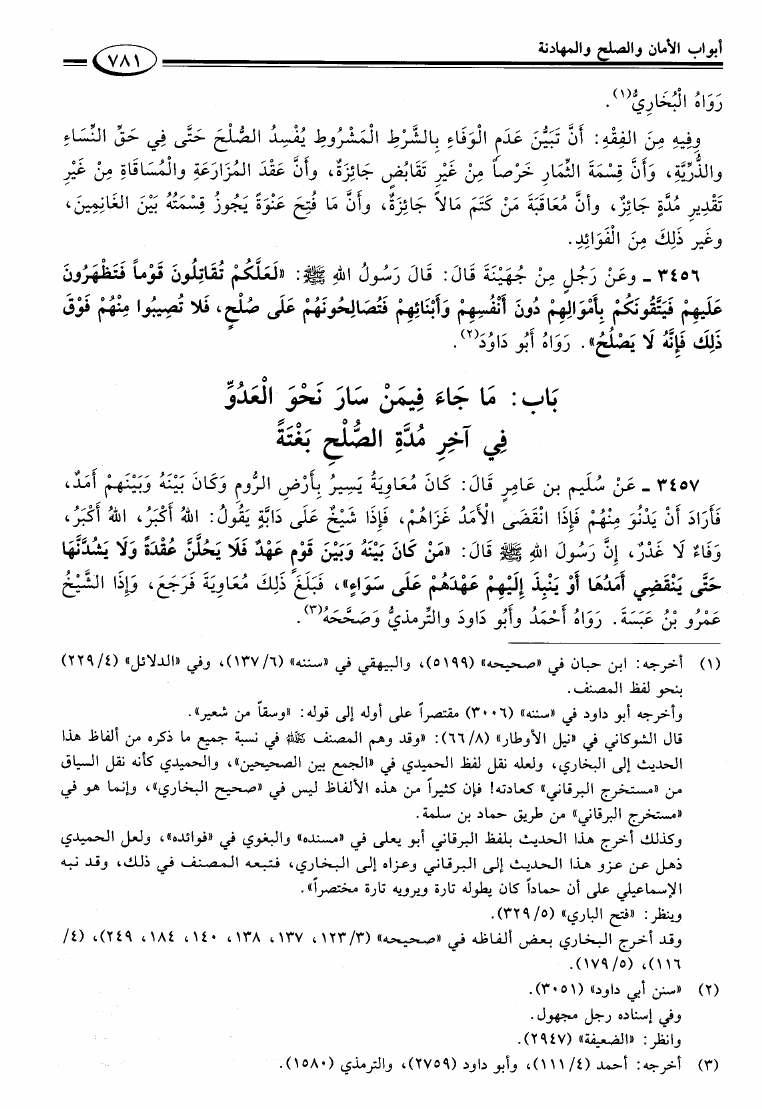 أبواب الأمان والصلح والمهادنة
٧٨١
رَوَاهُ الْبُخَارِيُّ(١).
وفِيهِ مِنَ الفِقْهِ: أَنَّ تَبَيُّنَ عَدَمِ الْوَفَاءِ بِالشَّرْطِ الْمَشْرُوطِ يُفْسِدُ الصُّلْحَ حَتَّى فِي حَقِّ النِّسَاءِ
والذُّرِّيَّةِ، وَأَنَّ قِسْمَةَ الثِّمَارِ خَرْصاً مِنْ غَيْرِ تَقَابُضٍ جَائِزَةٌ، وأَنَّ عَقْدَ المُزَارَعَةِ والْمُسَاقَاةِ مِنْ غَيْرِ
تَقْدِيرِ مُدَّةٍ جَائِزٌ، وأنَّ مُعَاقَبَةَ مَنْ كَتَمَ مَالاً جَائِزَةٌ، وأَنَّ مَا فُتِحَ عَنْوَةً يَجُوزُ قِسْمَتُهُ بَيْنَ الغَانِمِينَ،
وغَير ذَلِكَ مِنَ الْفَوَائِدِ.
٣٤٥٦ ـ وعَنْ رَجُلٍ مِنْ جُهَيْنَةَ قَالَ: قَالَ رَسُولُ اللهِ ﷺ: «لَعَلَّكُمْ تُقَاتِلُونَ قَوْماً فَتَظْهَرُونَ
عَلَيهِمْ فَيَتَّقُونَكُمْ بِأَمْوَالِهِمْ دُونَ أَنْفُسِهِمْ وَأَبْنَائِهِمْ فَتُصَالِحُونَهُمْ عَلَى صُلْحٍ، فَلا تُصِيبُوا مِنْهُمْ فَوْقَ
ذَلِكَ فَإِنَّهُ لَا يَصْلُحُ». رَوَاهُ أَبُو دَاوُدَ(٢).
بَاب: مَا جَاءَ فِيمَنْ سَارَ نَحْوَ الْعَدُوِّ
فِي آخِرِ مُدَّةِ الصُّلْحِ بَغْتَةً
٣٤٥٧ ـ عَنْ سُلَيم بن عَامِرٍ قَالَ: كَانَ مُعَاوِيَةُ يَسِيرُ بِأَرْضِ الرُّومِ وَكَانَ بَيْنَهُ وَبَيْنَهمْ أَمَدٌ،
فَأَرَادَ أَنْ يَدْنُوَ مِنْهُمْ فَإِذَا انْقَضَى الْأَمَدُ غَزَاهُمْ، فَإِذَا شَيْخٌ عَلَى دَابَّةٍ يَقُولُ: اللهُ أَكْبَرُ، اللهُ أَكْبَرُ،
وَفَاءٌ لَا غَدْرٌ، إِنَّ رَسُولَ اللهِ ﷺ قَالَ: «مَنْ كَانَ بَيْنَهُ وَبَيْنَ قَوْمٍ عَهْدٌ فَلَا يَحُلَّنَّ عُقْدَةً وَلَا يَشُدَّنَّهَا
حَتَّى يَنْقَضِي أَمَدُهَا أَوْ يَنْبِذَ إِلَيْهِمْ عَهْدَهُمْ عَلَى سَوَاءٍ»، فَبَلَغَ ذَلِكَ مُعَاوِيَةَ فَرَجَعَ، وَإِذَا الشَّيْخُ
عَمْرُو بْنُ عَبَسَةَ. رَوَاهُ أَحْمَدُ وأَبُو دَاودَ والتِّرمذيُّ وَصَحَّحَهُ(٣).
(١) أخرجه: ابن حبان في «صحيحه» (٥١٩٩)، والبيهقي في «سننه» (١٣٧/٦)، وفي «الدلائل» (٢٢٩/٤)
بنحو لفظ المصنف.
وأخرجه أبو داود في «سننه» (٣٠٠٦) مقتصراً على أوله إلى قوله: «وسقاً من شعير».
قال الشوكاني في «نيل الأوطار» (٦٦/٨): «وقد وهم المصنف ﵀ في نسبة جميع ما ذكره من ألفاظ هذا
الحديث إلى البخاري، ولعله نقل لفظ الحميدي في «الجمع بين الصحيحين»، والحميدي كأنه نقل السياق
من «مستخرج البرقاني» كعادته! فإن كثيراً من هذه الألفاظ ليس في «صحيح البخاري»، وإنما هو في
«مستخرج البرقاني» من طريق حماد بن سلمة.
وكذلك أخرج هذا الحديث بلفظ البرقاني أبو يعلى في «مسنده» والبغوي في «فوائده»، ولعل الحميدي
ذهل عن عزو هذا الحديث إلى البرقاني وعزاه إلى البخاري، فتبعه المصنف في ذلك، وقد نبه
الإسماعيلي على أن حماداً كان يطوله تارة ويرويه تارة مختصراً».
وينظر: «فتح الباري» (٣٢٩/٥).
وقد أخرج البخاري بعض ألفاظه في «صحيحه» (١٢٣/٣، ١٣٧، ١٣٨، ١٤٠، ١٨٤، ٢٤٩)، (٤/
١١٦)، (١٧٩/٥).
(٢) «سنن أبي داود» (٣٠٥١).
وفي إسناده رجل مجهول.
وانظر: «الضعيفة» (٢٩٤٧).
(٣) أخرجه: أحمد (١١١/٤)، وأبو داود (٢٧٥٩)، والترمذي (١٥٨٠).